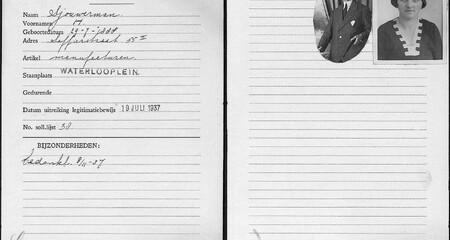 Naam Sjouwerman
Voornamen M
Geboortedatum 29-7-1888
Adres Saffierstraat 55 II
Artikel manufacturen
Staanplaats WATERLOOPLEIN.
Gedurende
Datum uitreiking legitimatiebewijs 19 JULI 1937
No. soll.lijst 38
BIJZONDERHEDEN:
bedankt. 8/11-37